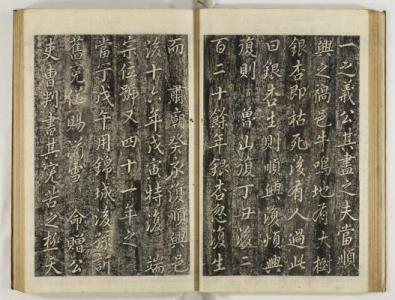 一之義公其盡之矣當順
興之禍邑牛鳴地有大樹
銀杏即枯死後有人過此
曰銀杏生則順興復順興
復則魯山復丁丑後二
百二十餘年銀杏忽復生
而肅廟癸亥復順興邑
後十六年戊寅特復端
宗位號又四十一年之
當宁戊午用錦城後孫訴
舊冤催賜滌雪命贈公
吏曹判書其冤苦之極天